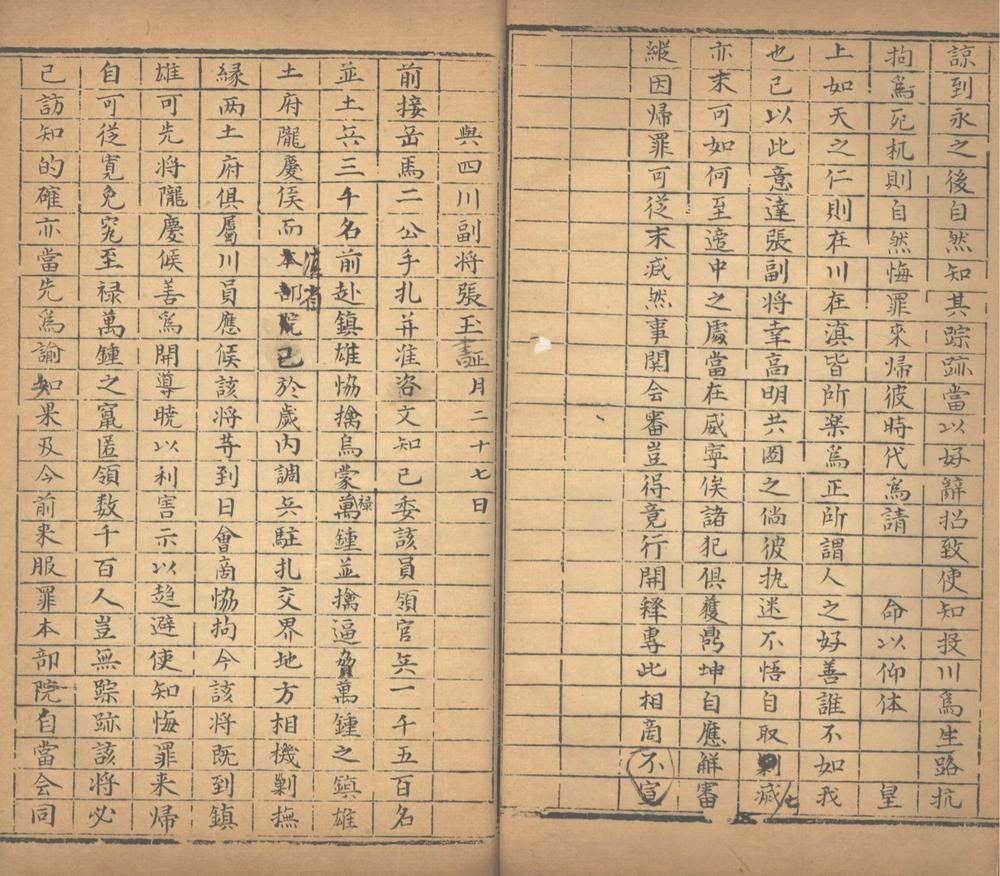 諒到永之後自然知其踪跡當以好辭招致使知投川爲生路抗
拘爲死机則自然悔罪來帰彼時代爲請命以仰体皇
上如天之仁則在川在滇皆所楽爲正所謂人之好善誰不如我
也已以此意達張副将幸高明共圖之倘彼执迷不悟自取剿滅
亦末可如何至遊中之處當在威寕俟諸犯俱獲鹍坤自應觧審
縦因帰罪可從末减然事関会審豈得竟行開释専此相啇不宣
與四川副将張玉 正月二十七日
前接岳馬二公手扎并准咨文知已委該員領官兵一千五百名
並土兵三千名前赴鎮雄恊擒烏蒙禄萬鍾並擒逼脅萬鍾之鎮雄
土府隴慶侯而滇省本部院已於歳内調兵駐扎交界地方相機剿撫
縁两土府俱屬川員應候該将䓁到日會啇恊拘今該将既到鎮
雄可先将隴慶候善爲開導暁以利害示以趋避使知悔罪来帰
自可從寛免究至禄萬鍾之竄匿領数千百人豈無踪跡該将必
已訪知的確亦當先爲諭知果及今前来服罪本部院自當会同